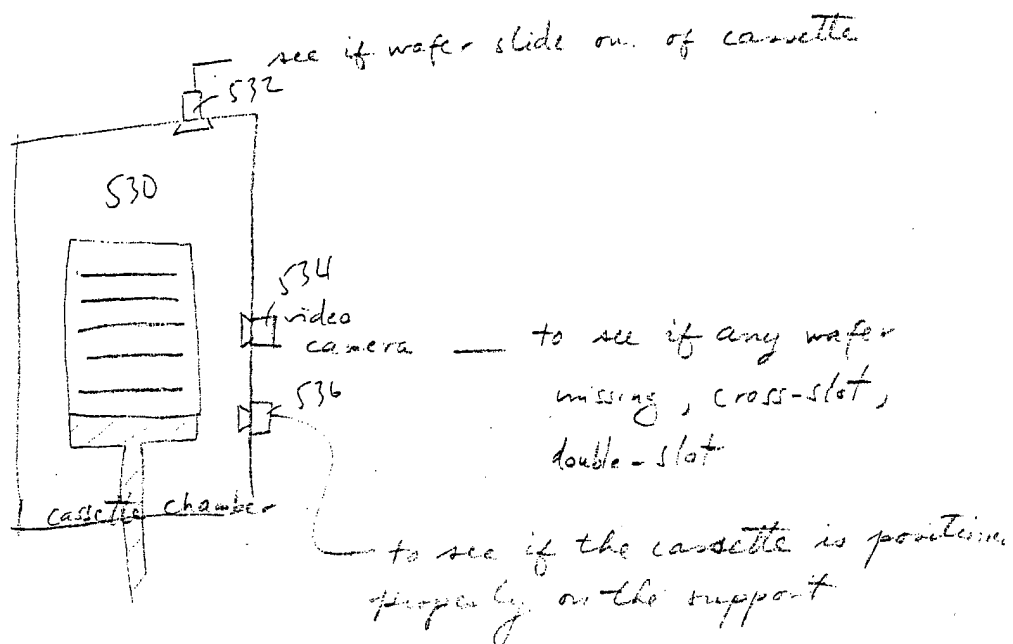 see if wafer slide on. of cassette
532
530
534
video
camera — to see if any wafer
missing, cross-slot,
double-slot
536
cassette chamber
to see if the cassette is position
properly on the support